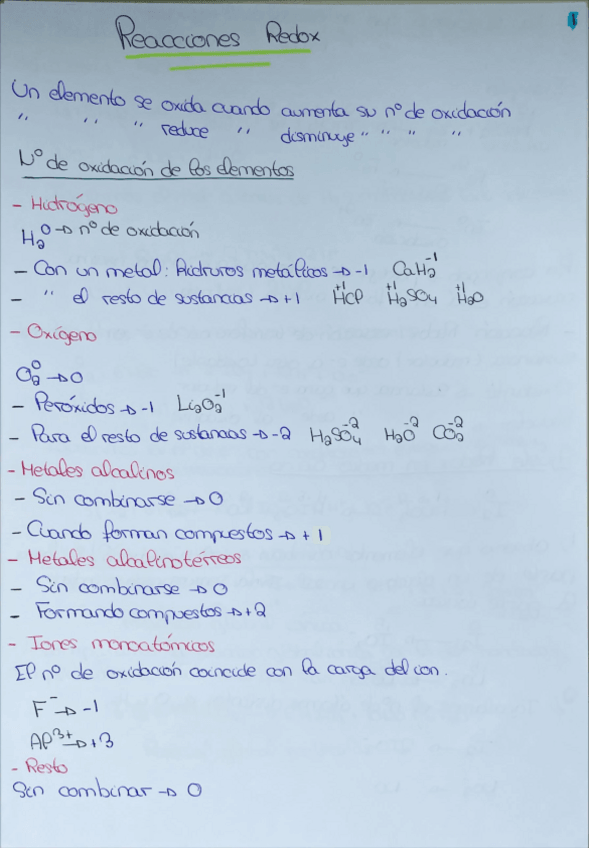 1
Reacciones Redox
Un elemento se oxida cuando aumenta su nº de oxidación
" " " reduce " disminuye " " " "
Nº de oxidación de los elementos
- Hidrógeno
H₂⁰ → nº de oxidación
- Con un metal: Hidruros metálicos → -1 CaH₂⁻¹
- " el resto de sustancias → +1 H⁺¹Cl H⁺¹₂SO₄ H⁺¹₂O
- Oxígeno
O₂⁰ → 0
- Peróxidos → -1 Li₂O₂⁻¹
- Para el resto de sustancias → -2 H₂SO₄⁻² H₂O⁻² CO₂⁻²
- Metales alcalinos
- Sin combinarse → 0
- Cuando forman compuestos → +1
- Metales alcalinotérreos
- Sin combinarse → 0
- Formando compuestos → +2
- Iones monoatómicos
El nº de oxidación coincide con la carga del ion.
F⁻ → -1
Al³⁺ → +3
- Resto
Sin combinar → 0